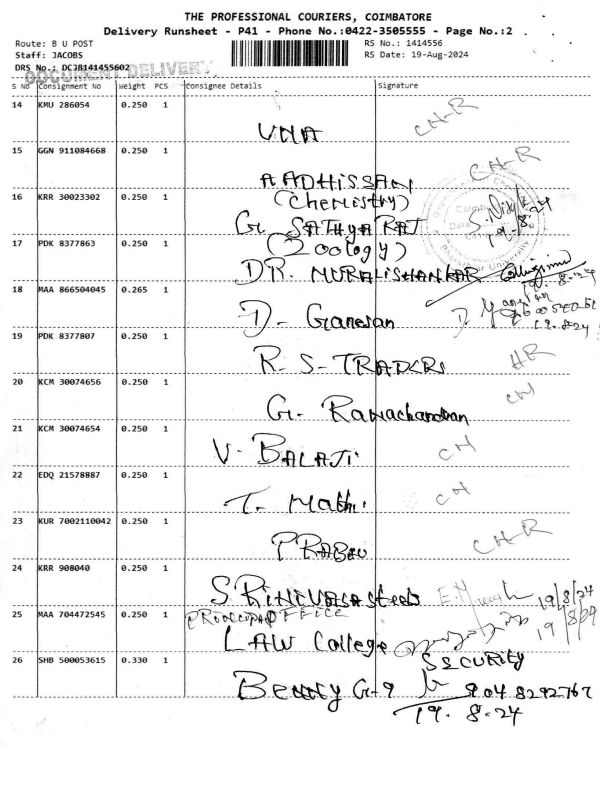 THE PROFESSIONAL COURIERS, COIMBATORE
Delivery Runsheet - P41 - Phone No.:0422-3505555 - Page No.:2
Route: B U POST
RS No.: 1414556
Staff: JACOBS
RS Date: 19-Aug-2024
DRS No.: DCJB141455602
DOCUMENT DELIVERY
S No Consignment No Weight PCS Consignee Details Signature
14 KMU 286054 0.250 1
VNA CH-R
15 GGN 911084668 0.250 1
AADHISSAN CH-R
16 KRR 30023302 0.250 1
(Chemistry)
G. SATHYA RAJ
19-8-24
17 PDK 8377863 0.250 1
(Zoology)
DR. MURALISHANKAR
19.8.24
18 MAA 866504045 0.265 1
D. Ganesan
19.8.24
19 PDK 8377807 0.250 1
R-S-TRADERS
20 KCM 30074656 0.250 1
G. Ramachandran
21 KCM 30074654 0.250 1
V. BALAJI CH
22 EDQ 21578887 0.250 1
T. Mathi CH
23 KUR 7002110042 0.250 1
PRABHU CH-R
24 KRR 908040 0.250 1
SRINIVASA Steels 19/8/24
25 MAA 704472545 0.250 1
OFFICE
LAW College
26 SHB 500053615 0.330 1
SECURITY
Benny G-9 9048292767
19.8.24